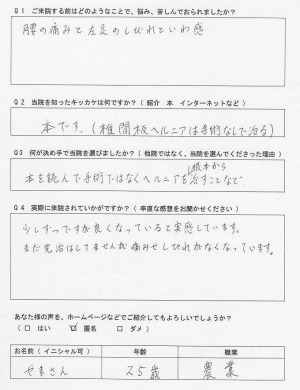 Q1 ご来院する前はどのようなことで、悩み、苦しんでおられましたか？
腰の痛みと左足のしびれといわ感
Q2 当院を知ったキッカケは何ですか？（紹介 本 インターネットなど）
本です。（椎間板ヘルニアは手術なしで治る）
Q3 何が決め手で当院を選びましたか？（他院ではなく、当院を選んでくださった理由）
根本から
本を読んで手術ではなくヘルニアを治すことなど
Q4 実際に来院されていかがですか？（率直な感想をお聞かせください）
少しずつですが良くなっていると実感しています。
まだ完治はしてませんが痛みもしびれがなくなっています。
あなた様の声を、ホームページなどでご紹介してもよろしいでしょうか？
□ はい ☑ 匿名 □ ダメ
お名前（イニシャル可） 年齢 職業
やまさん 25歳 農業